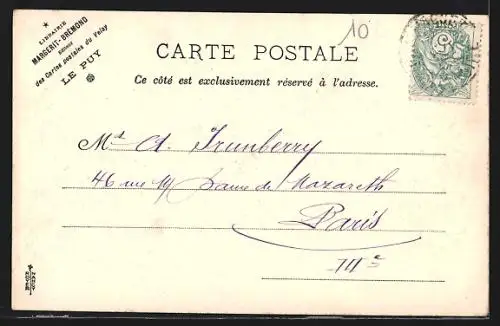 LIBRAIRIE
MARGERIT-BRÉMOND
ÉDITEUR
des Cartes postales du Velay
LE PUY
10
CARTE POSTALE
Ce côté est exclusivement réservé à l'adresse.
5
Md A. Trunberry
46 rue N Dame de Nazareth
Paris
IIIe